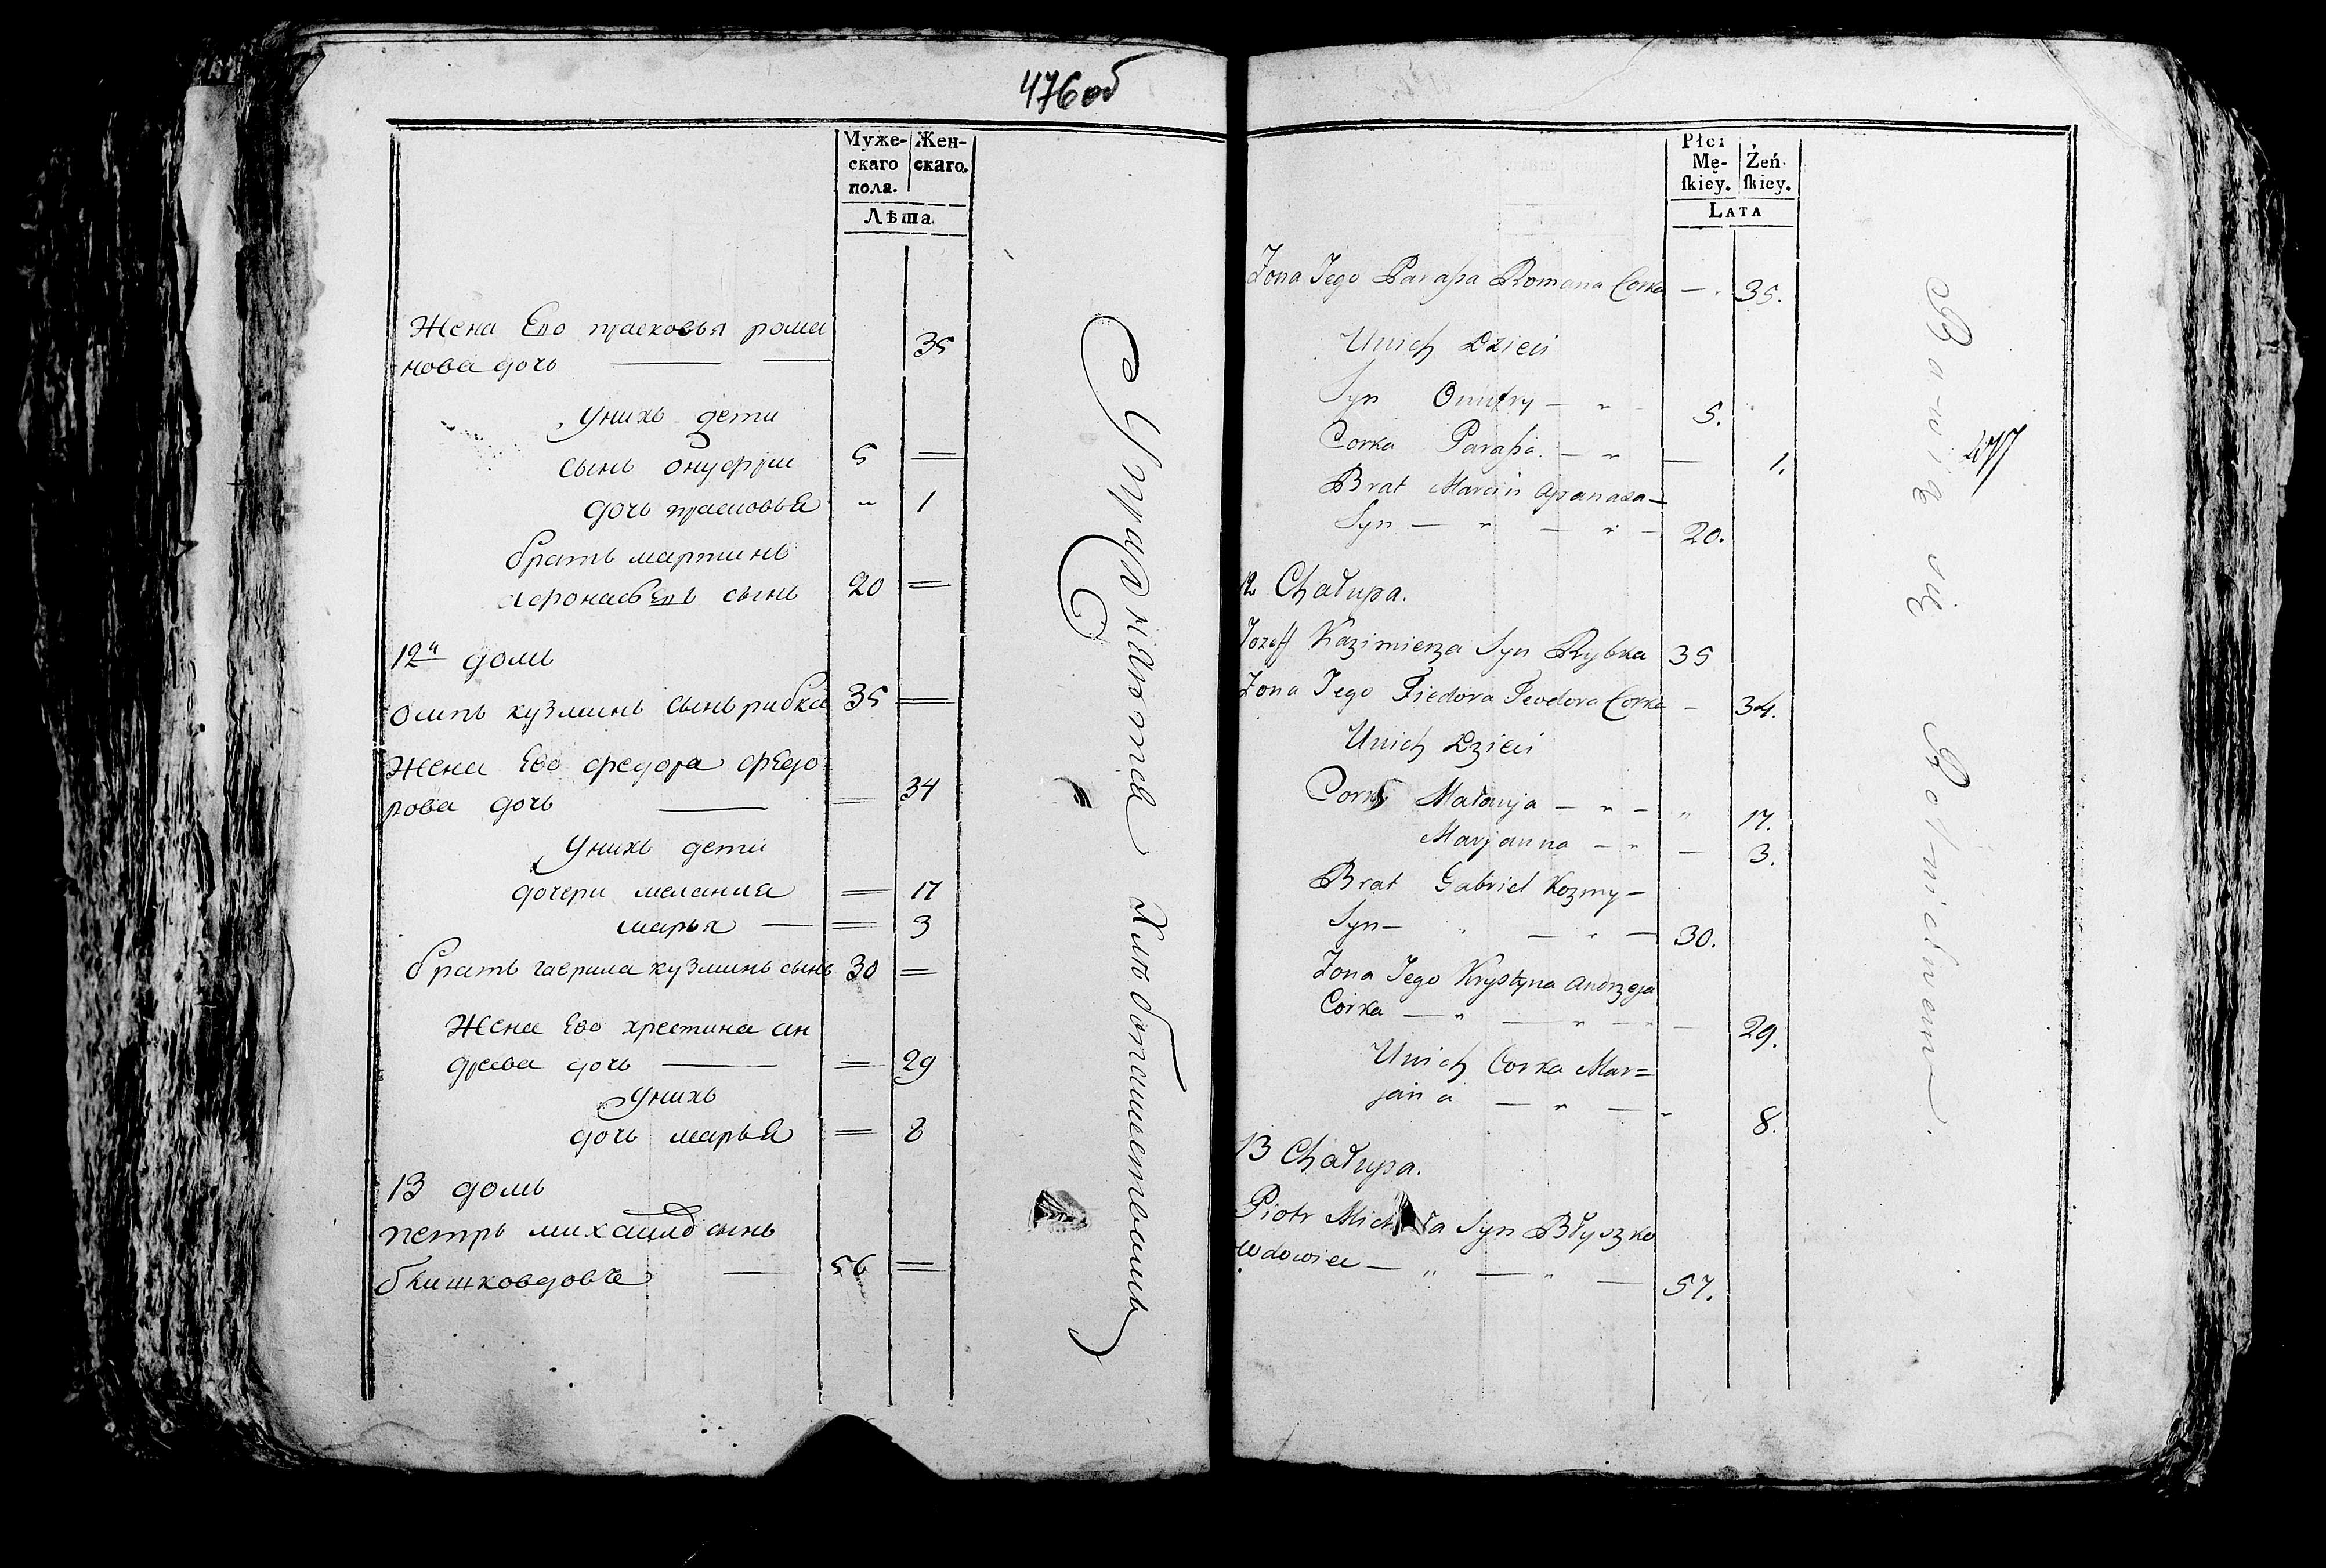 476об
Муже-
скаго
пола.
Жен-
скаго.
Лѣта
Жена Ево прасковья рома
нова дочь — — 35
Унихъ дети
сынъ онуфри 5 =
дочь прасковья " 1
братъ мартинъ
афонасьевъ сынъ 20 =
12й домъ
осипъ кузминъ сынъ рибка 35 =
Жена Ево федора федо
рова дочь — = 34
Унихъ дети
дочери мелания = 17
марья — = 3
братъ гаврила кузминъ сынъ 30 =
Жена Ево хрестина ан
древа дочь — = 29
Унихъ
дочь марья = 8
13 домъ
петръ михайлъ сынъ
блишко вдовъ — 56 =
Упражняются хлѣбопашествомъ
Płci
Mę-
ſkiey.
Żeń-
ſkiey.
LATA
477
Żona Jego Paraſka Romana Corka — . 35.
Unich Dzieci
Syn Onufry — " 5.
Corka Paraſka. — " — 1.
Brat Marcin Apanasa —
Syn — " — " — 20.
12 Chałupa.
Jozeff Kazimierza Syn Rybka 35
Żona Jego Fiedora Teodora Corka — 34.
Unich Dzieci
Corki Małanja — " — " 17.
Marjanna — " — 3.
Brat Gabriel Kozmy —
Syn — " — " — 30.
Żona Jego Krystyna Andrzeja
Corka — " — " — — 29.
Unich Corka Mar=
jana — " — " 8.
13 Chałupa.
Piotr Michała Syn Błyszko
wdowiec — " — " — 57.
Bawią się Rolnictwem.